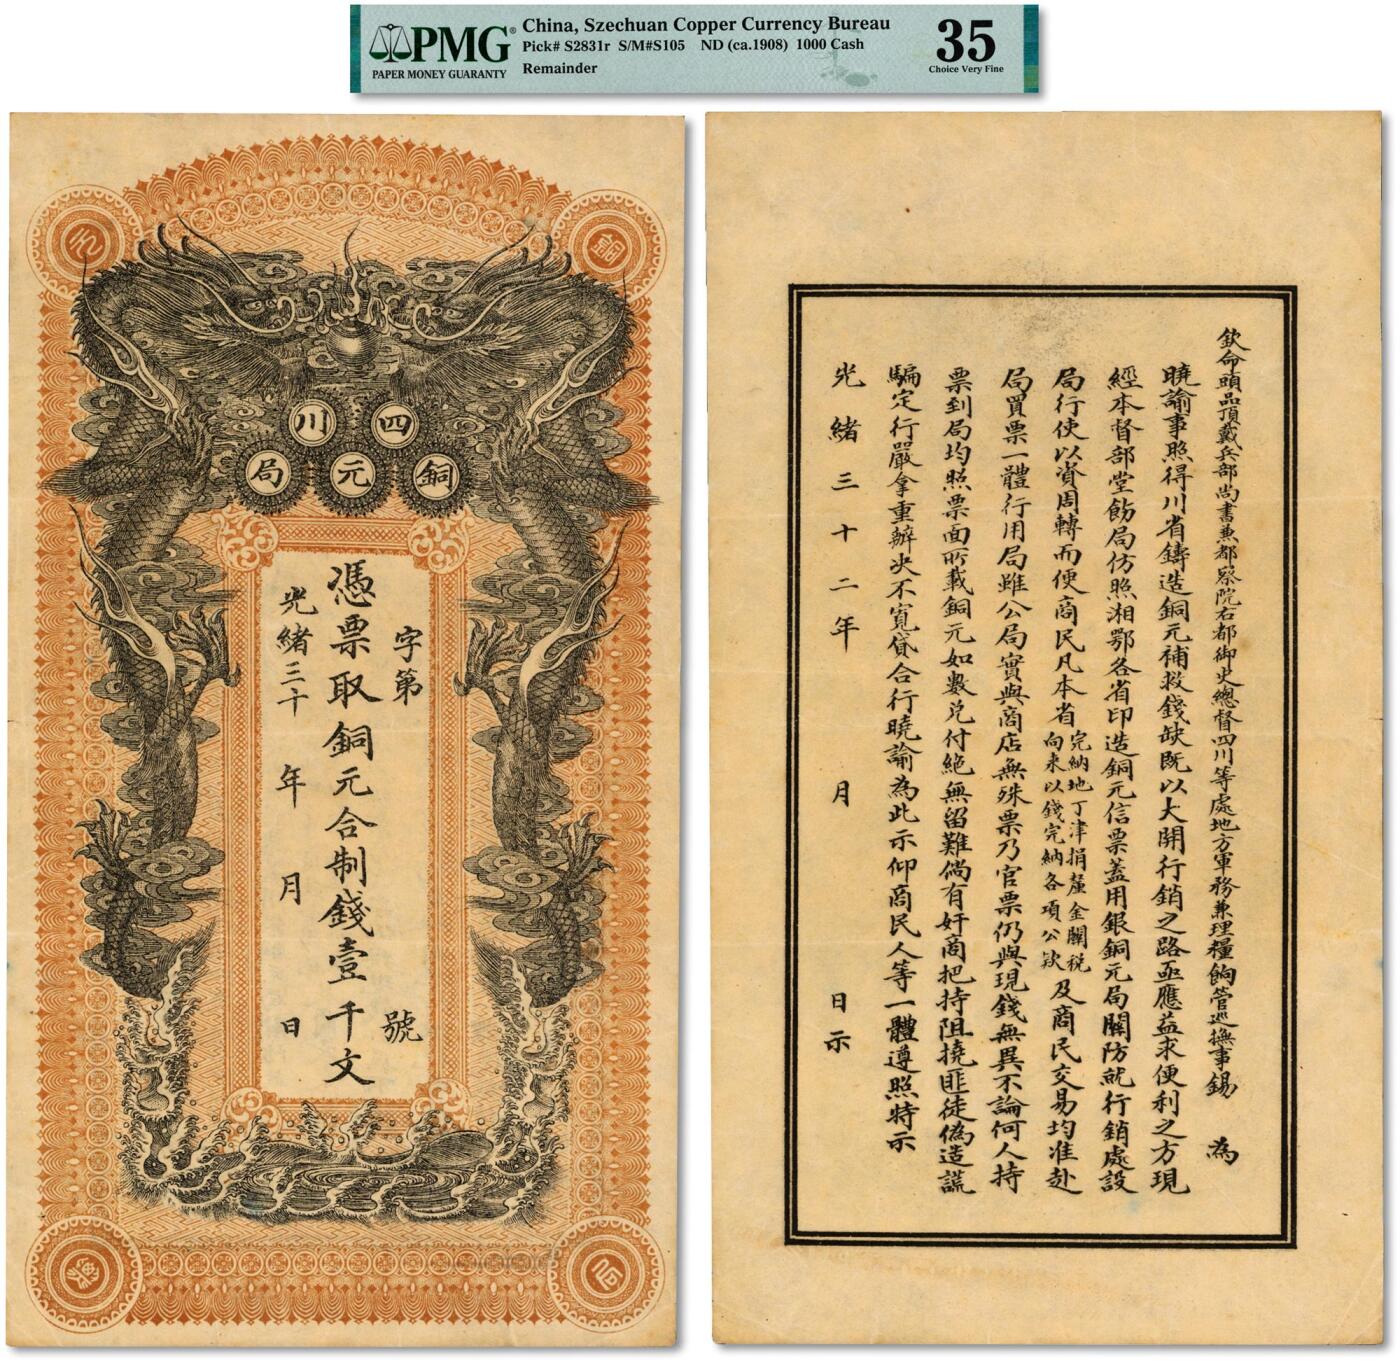 PMG®
PAPER MONEY GUARANTY
China, Szechuan Copper Currency Bureau
Pick# S2831r S/M#S105 ND (ca.1908) 1000 Cash
Remainder
35
Choice Very Fine
四川
銅元局
字第 號
憑票取銅元合制錢壹千文
光緒三十 年 月 日
欽命頭品頂戴兵部尚書兼都察院右都御史總督四川等處地方軍務兼理糧餉管巡撫事錫 為
曉諭事照得川省鑄造銅元補救錢缺既以大開行銷之路亟應益求便利之方現
經本督部堂飭局仿照湘鄂各省印造銅元信票蓋用銀銅元局關防就行銷處設
局行使以資周轉而便商民凡本省完納地丁津捐釐金關稅向來以錢完納各項公欵及商民交易均准赴
局買票一體行用局雖公局實與商店無殊票乃官票仍與現錢無異不論何人持
票到局均照票面所載銅元如數兌付絕無留難倘有奸商把持阻撓匪徒偽造謊
騙定行嚴拿重辦決不寬貸合行曉諭為此示仰商民人等一體遵照特示
光緒三十二年 月 日示